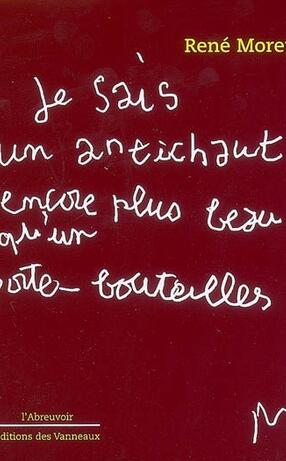 René More
Je sais
un antichaut
encore plus beau
qu'un
porte-bouteilles
l'Abreuvoir
ditions des Vanneaux